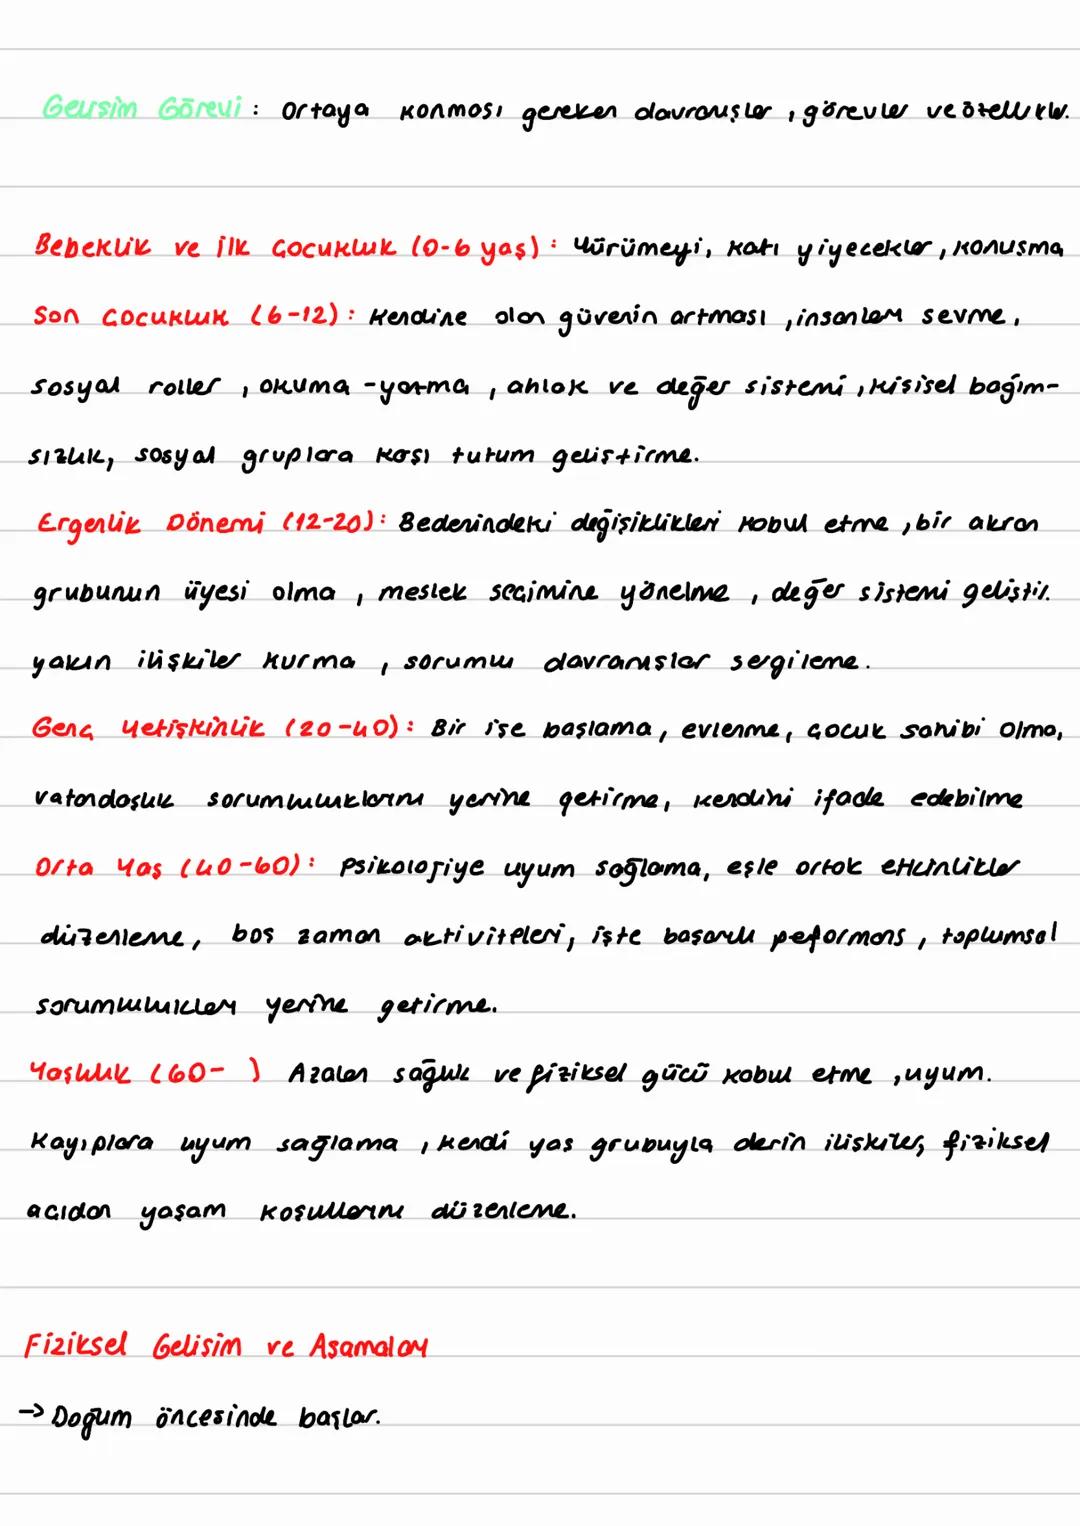 Gelişim Görevi : Ortaya konması gereken davranışlar , görevler ve özellikler.
Bebeklik ve ilk çocukluk (0-6 yaş) : Yürümeyi, katı yiyecekler , konuşma
Son Çocukluk (6-12) : Kendine olan güvenin artması , insanları sevme ,
sosyal roller , okuma - yazma , ahlak ve değer sistemi , kişisel bağım-
sızlık, sosyal gruplara karşı tutum geliştirme.
Ergenlik Dönemi (12-20) : Bedenindeki değişiklikleri kabul etme , bir akran
grubunun üyesi olma , meslek seçimine yönelme , değer sistemi geliştir.
yakın ilişkiler kurma , sorumlu davranışlar sergileme .
Genç Yetişkinlik (20-40) : Bir işe başlama , evlenme , çocuk sahibi olma,
vatandaşlık sorumluluklarını yerine getirme, kendini ifade edebilme
Orta Yaş (40-60) : Psikolojiye uyum sağlama, eşle ortak etkinlikler
düzenleme, boş zaman aktiviteleri, işte başarılı peformans , toplumsal
sorumlulukları yerine getirme.
Yaşlılık (60- ) Azalan sağlık ve fiziksel gücü kabul etme , uyum.
Kayıplara uyum sağlama , kendi yaş grubuyla derin ilişkiler, fiziksel
açıdan yaşam koşullarını düzenleme.
Fiziksel Gelişim ve Aşamaları
→ Doğum öncesinde başlar.